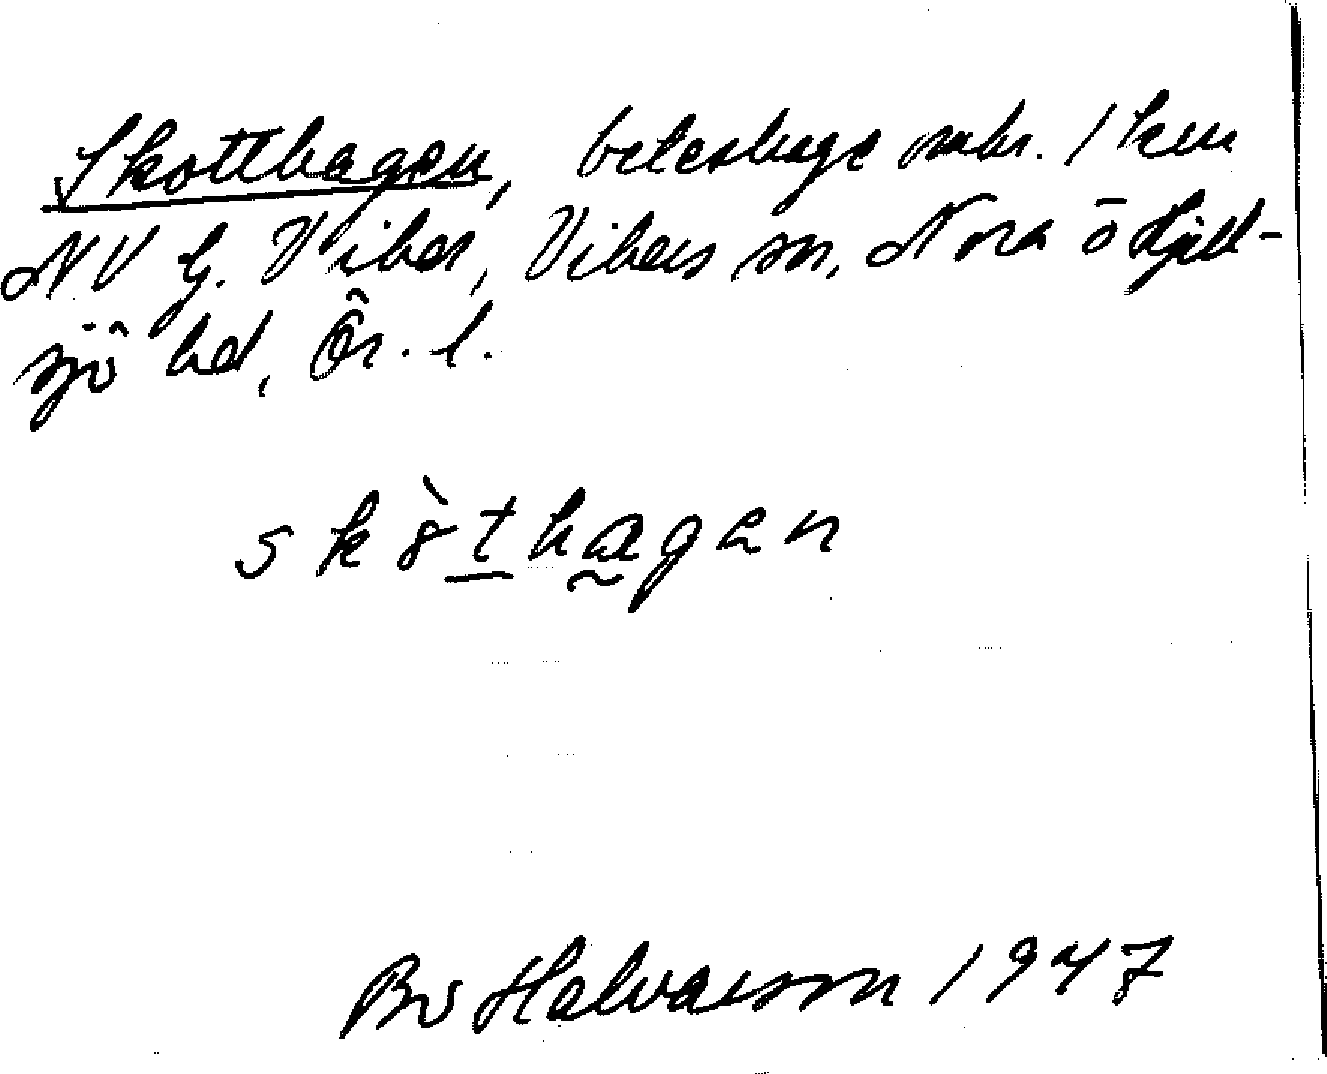 Skotthagen, beteshage omkr. 1 km
NV G. Viker, Vikers sn, Nora o Hjäll-
sjö hd, Ör. l.
sköthagen
Bo Halvarson 1947